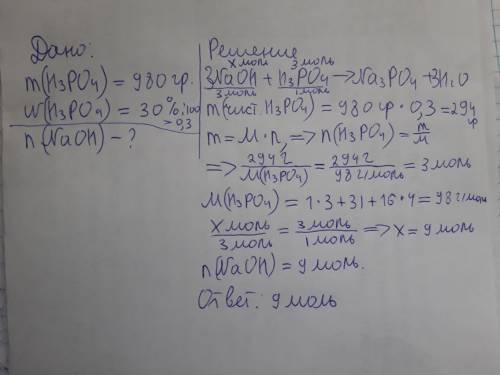 Дано:
m(H₃PO₄) = 980 гр.
w(H₃PO₄) = 30%:100
>0,3
n(NaOH) - ?
Решение
x моль 3 моль
3NaOH + H₃PO₄ → Na₃PO₄ + 3H₂O
3 моль 1 моль
m(чист. H₃PO₄) = 980 гр · 0,3 = 294 гр
m = M · n, => n(H₃PO₄) = m/M
=> 294 г/M(H₃PO₄) = 294 г/98 г/моль = 3 моль
M(H₃PO₄) = 1·3+31+16·4 = 98 г/моль
x моль/3 моль = 3 моль/1 моль => x = 9 моль
n(NaOH) = 9 моль.
Ответ: 9 моль